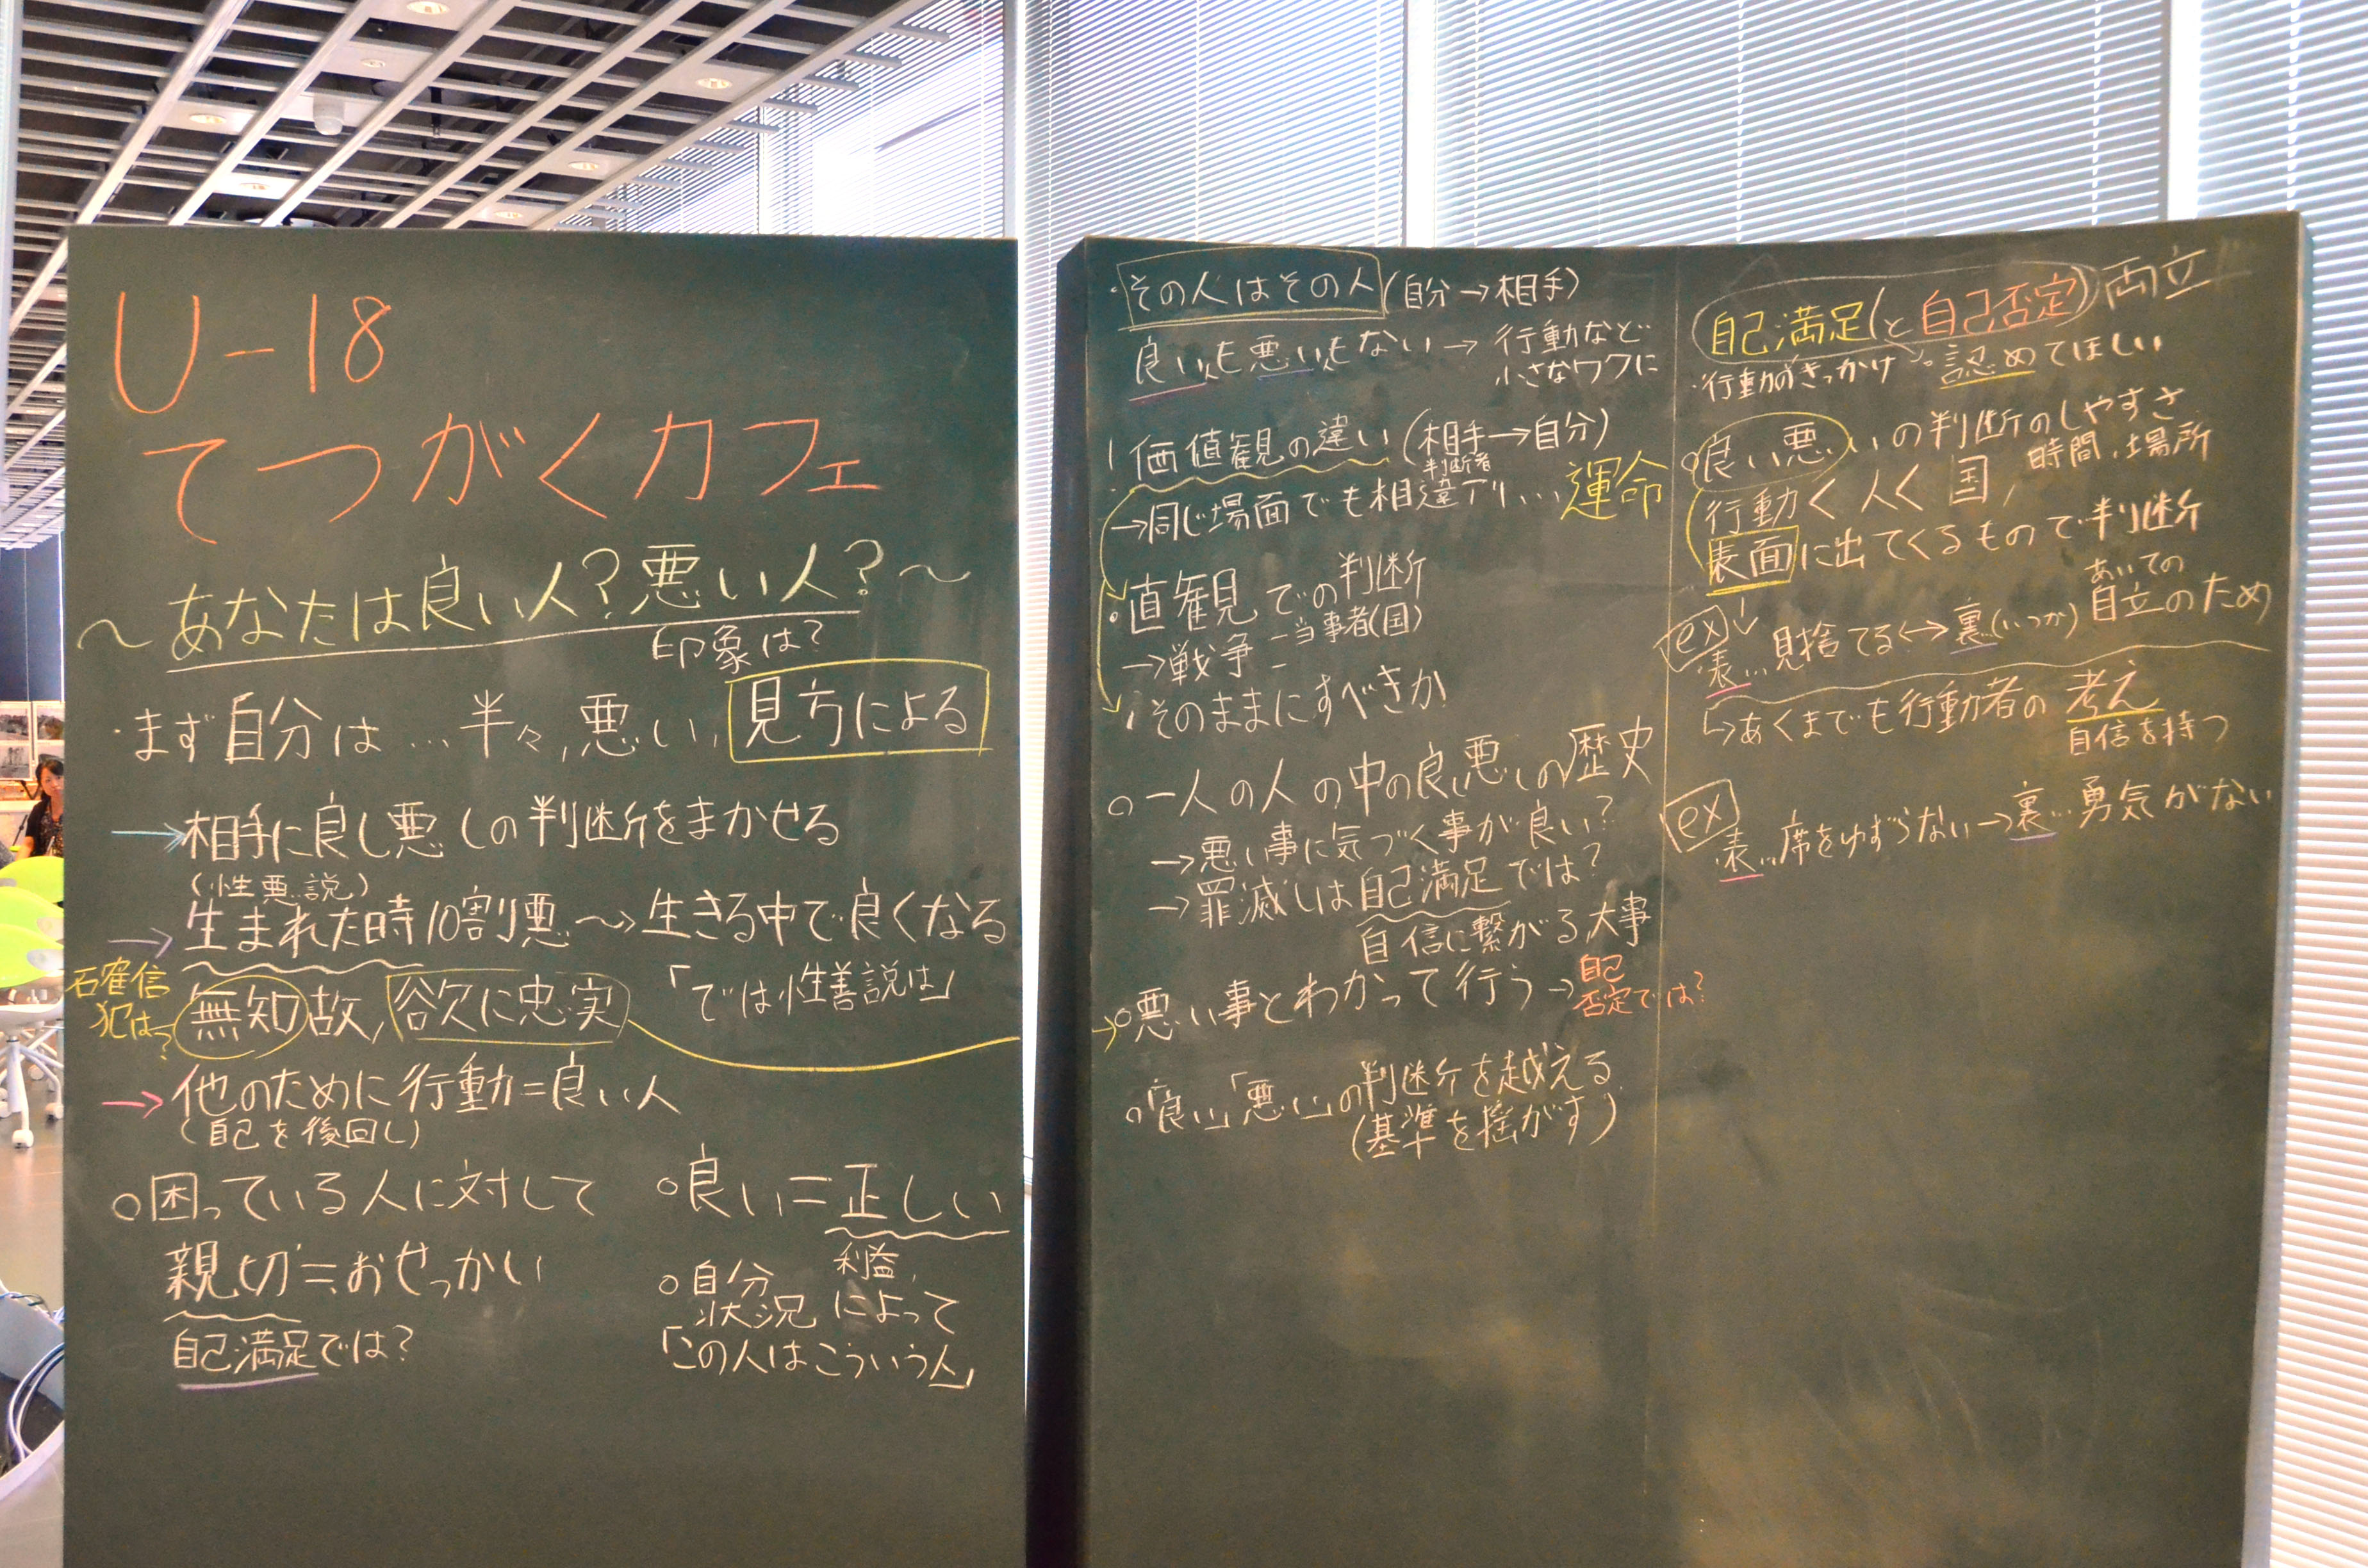 U-18
てつがくカフェ
～あなたは良い人?悪い人?～
印象は?
・まず自分は…半々,悪い,見方による
→相手に良し悪しの判断をまかせる
(性悪説)
→生まれた時10割悪～→生きる中で良くなる
確信犯は?
無知故,欲に忠実
「では性善説は」
→他のために行動=良い人
(自己を後回し)
○困っている人に対して
親切≒おせっかい
自己満足では?
○良い=正しい
利益,
○自分
状況によって
「この人はこういう人」
・その人はその人(自分→相手)
良いも悪いもない→行動など
小さなワクに
!価値観の違い(相手→自分)
判断者
→同じ場面でも相違アリ…運命
・直観での判断
→戦争-当事者(国)
そのままにすべきか
○一人の人の中の良し悪しの歴史
→悪い事に気づく事が良い?
→罪滅しは自己満足では?
自信に繋がる,大事
→○悪い事とわかって行う→自己
否定では?
○「良い」「悪い」の判断を越える
(基準を揺がす)
自己満足(と自己否定)両立
・行動のきっかけ 認めてほしい
○良い悪いの判断のしやすさ
行動く人く国, 時間,場所
表面に出てくるもので判断
ex
表…見捨てる↔裏(いつか)あいての
自立のため
↳あくまでも行動者の考え
自信を持つ
ex
表…席をゆずらない→裏…勇気がない